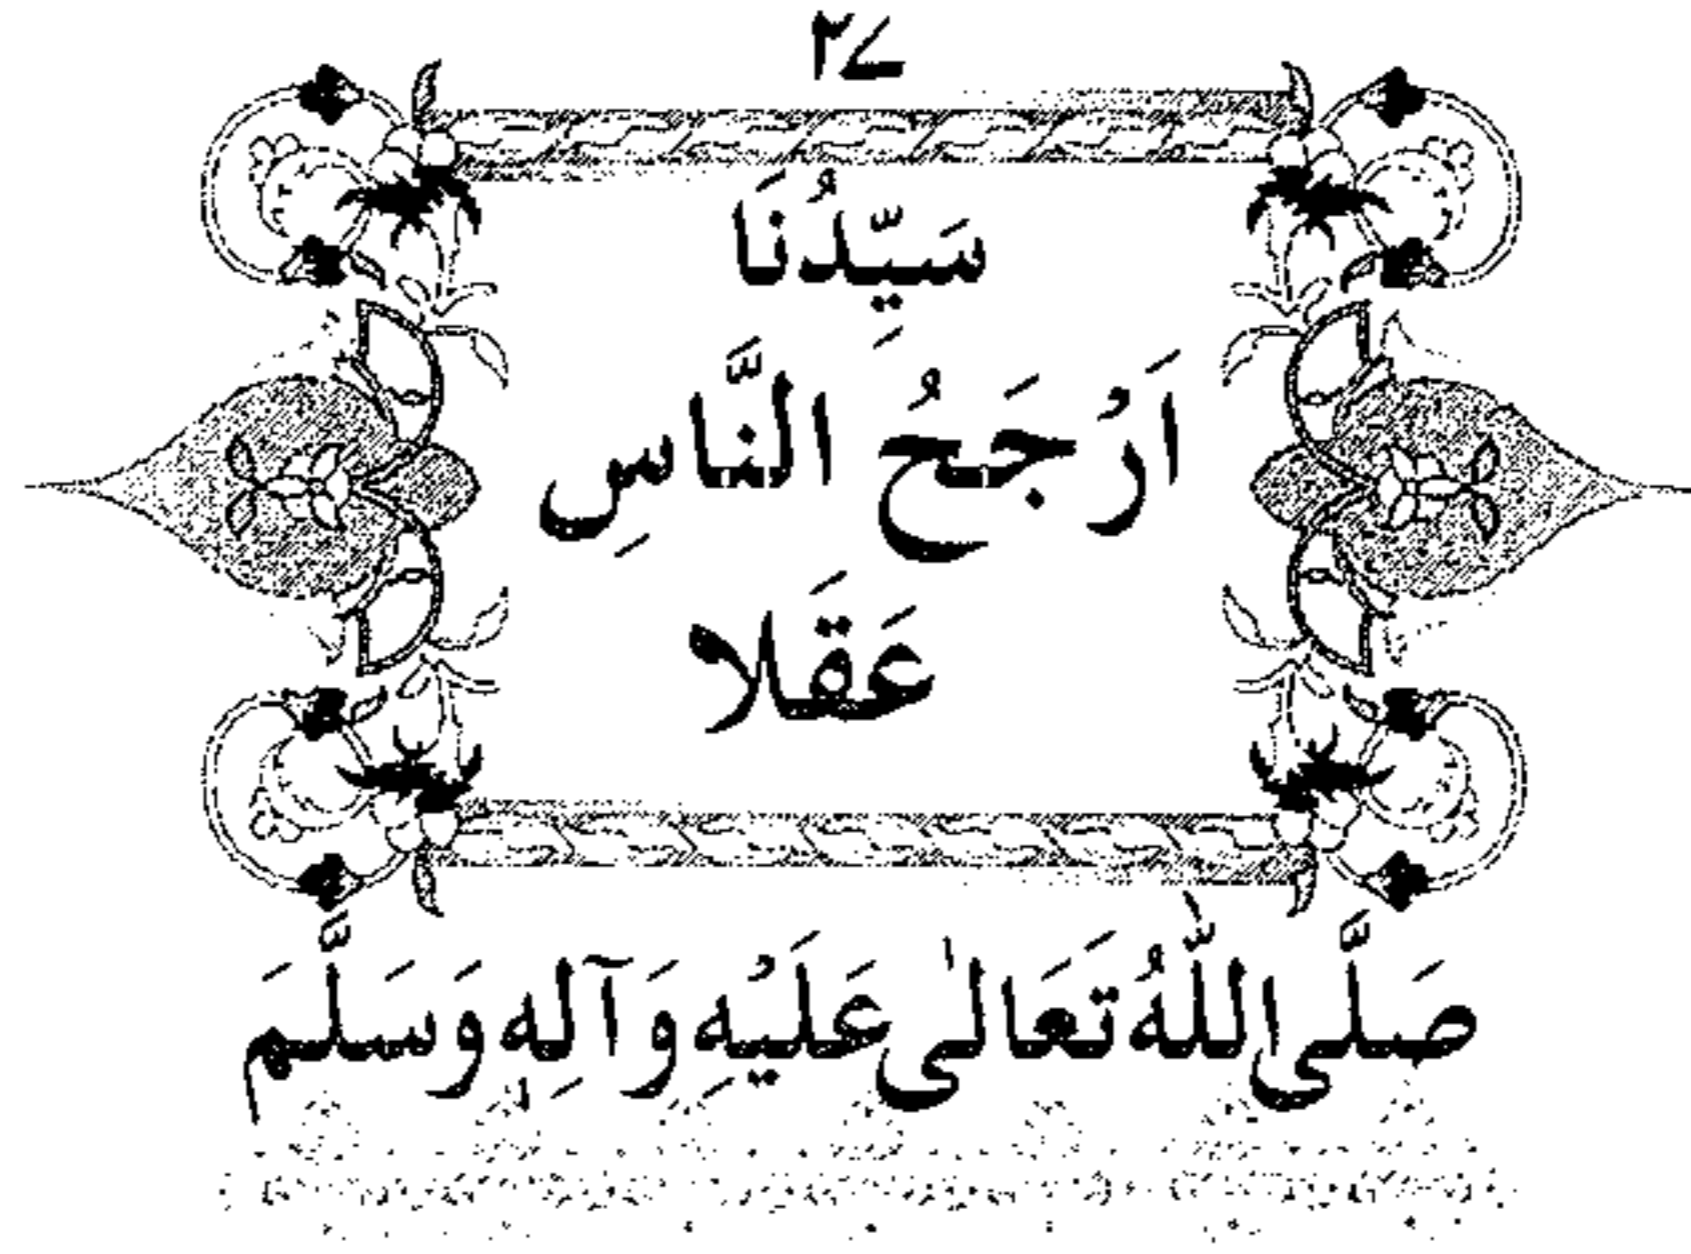 ۲۷
سَيِّدُنَا
اَرْجَحُ النَّاسِ
عَقَلا
صَلَّى اللّٰهُ تَعَالٰى عَلَيْهِ وَآلِهٖ وَسَلَّمَ